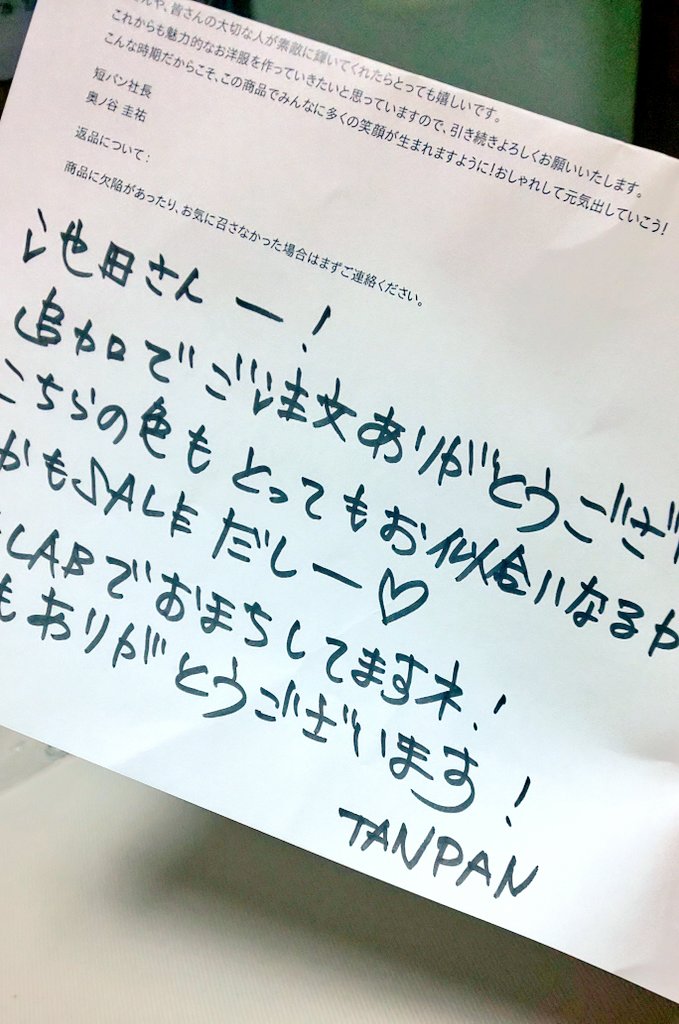 さんや、皆さんの大切な人が素敵に輝いてくれたらとっても嬉しいです。
これからも魅力的なお洋服を作っていきたいと思っていますので、引き続きよろしくお願いいたします。
こんな時期だからこそ、この商品でみんなに多くの笑顔が生まれますように！おしゃれして元気出していこう！
短パン社長
奥ノ谷 圭祐
返品について：
商品に欠陥があったり、お気に召さなかった場合はまずご連絡ください。
池田さんー！
追加でご注文ありがとうござ
こちらの色もとってもお似合いなるか
かもSALEだしー♡
LABでおまちしてますネ！
もありがとうございます！
TANPAN